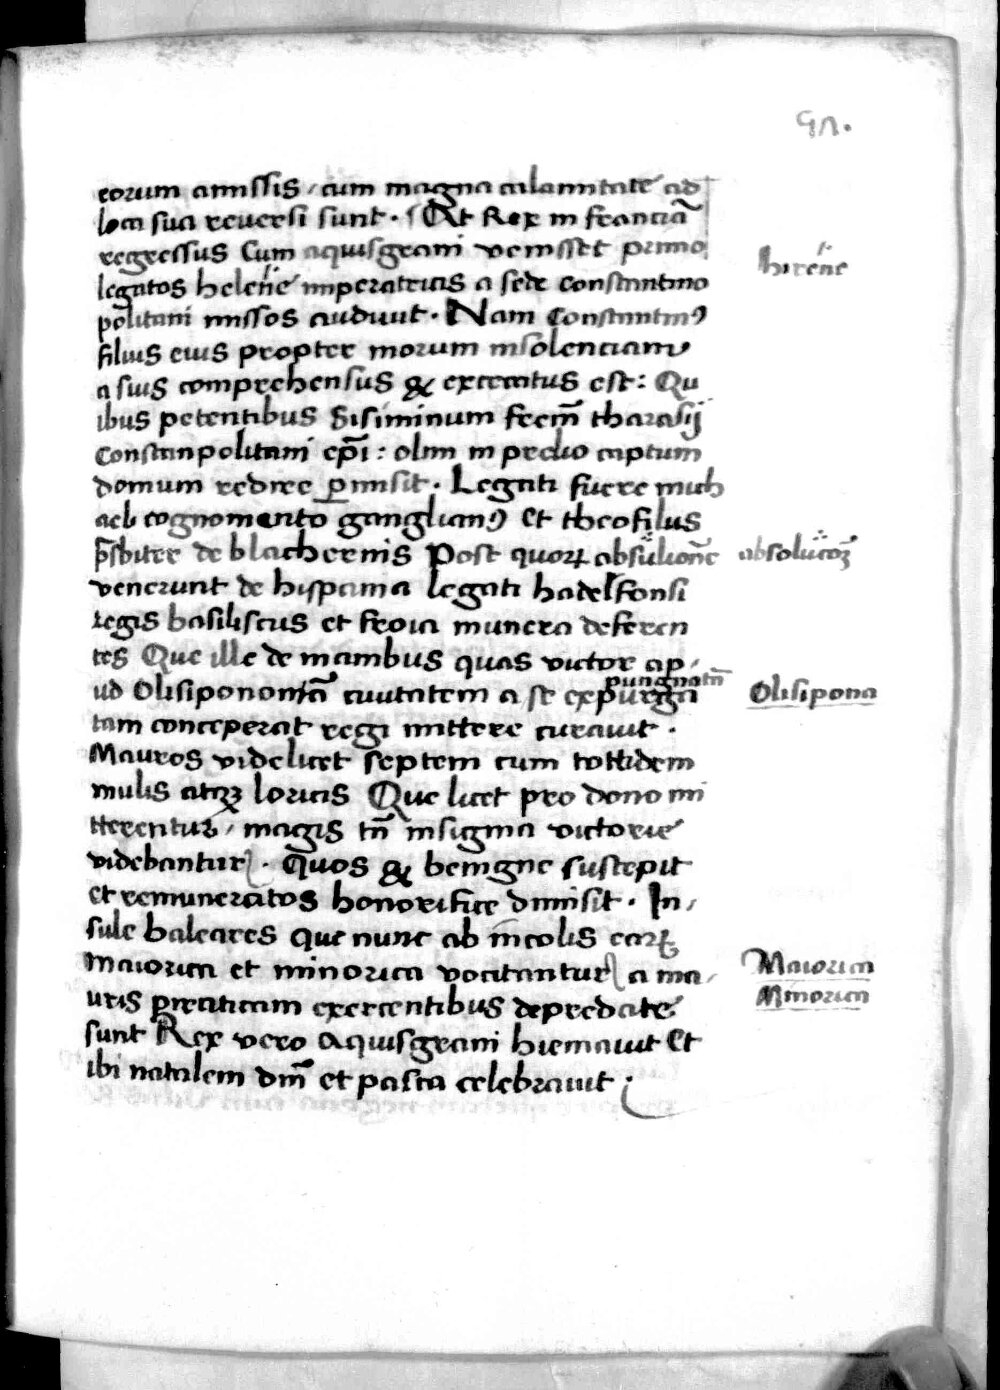 eorum amissis / cum magna calamitate ad
loca sua reuersi sunt · At Rex in franciā
regressus Cum aquisgrani venisset primo
hirēne
legatos helēne imperatricis a sede constantino
politani missos audiuit · Nam Constantinꝰ
filius eius propter morum insolenciam
a suis comprehensus & excecatus est : Qu
ibus petentibus Sisiminum frēm tharasij
Constanpolitani ep̄i : olim in prelio captum
domum redire ꝑmisit · Legati fuere mich
aeli cognomento ganglianꝰ Et theofilus
pr̄sbiter de blachernis Post quoꝝ absulionē
absolucōꝫ
venerunt de hispania legati hadelfonsi
regis basiliscus et froia munera deferen
tes Que ille de manibus quas victor ap /
pungnatā
ud Olisiponomā ciuitatem a se expurga
Olisipona
tam conceperat regi mittere curauit ·
Mauros videlicet septem cum tottidem
mulis atqꝫ loricis Que licet pro dono mi
tterentur / magis tn̄ insignia victorie
videbantur · Quos & benigne suscepit
et remuneratos honorifice dimisit · In /
sule baleares que nunc ab incolis eaꝝ
Maiorica
maiorica et minorica vocitantur a ma /
Minorica
uris piraticam exercentibus depredate
sunt Rex vero aquisgrani hiemauit Et
ibi natalem dm̄ et pasca celebrauit ·